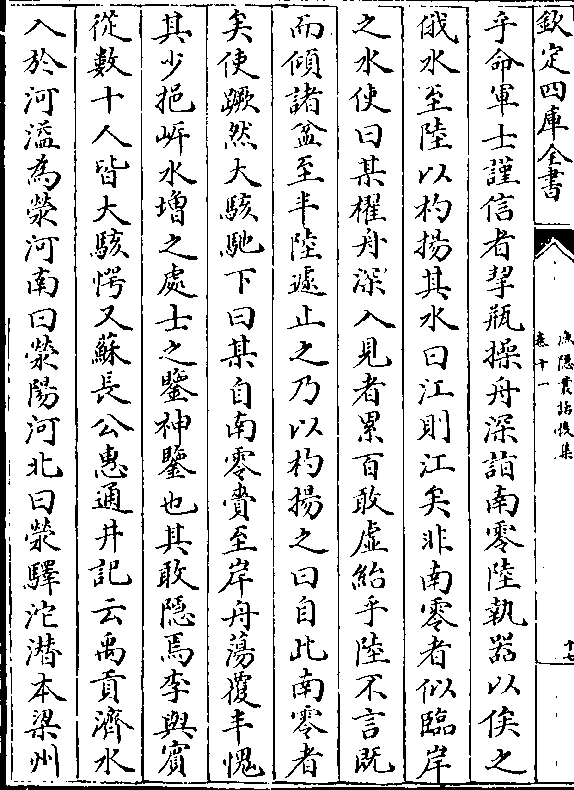 欽定四庫全書
漁隱叢話後集
卷十一
十七
乎命軍士謹信者挈瓶操舟深詣南零陸執器以俟之
俄水至陸以杓揚其水曰江則江矣非南零者似臨岸
之水使曰某櫂舟深入見者累百敢虚紿乎陸不言既
而傾諸盆至半陸遽止之乃以杓揚之曰自此南零者
矣使蹶然大駭馳下曰某自南零賫至岸舟蕩覆半愧
其少挹岸水增之處士之鑒神鑒也其敢隠焉李與賓
從數十人皆大駭愕又蘇長公惠通井記云禹貢濟水
入於河溢為滎河南曰滎陽河北曰滎驛沱潜本梁州